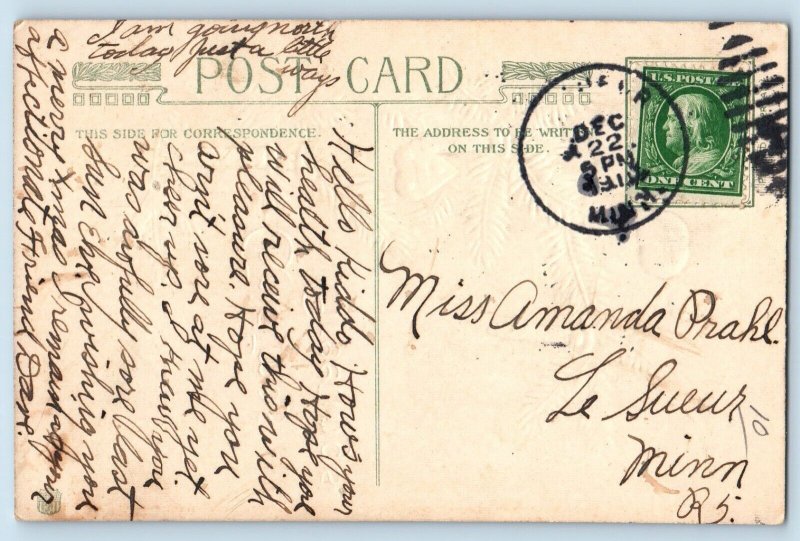 I am going north
today just a little
ways
POST CARD
THIS SIDE FOR CORRESPONDENCE.
THE ADDRESS TO BE WRITTEN
ON THIS SIDE.
U.S. POSTAGE
ONE CENT
DEC
22
PM
MINN.
Hello Kiddo How's your
health today Hope you
will receive this with
pleasure. Hope you
arnt sore at me yet.
cheer up. I thout you
was awfully sore last
Sun Eh wishing you
a merry Xmas I remain your
affictionate Friend Dave.
Miss Amanda Prahl.
Le Sueur
Minn
R5.
10